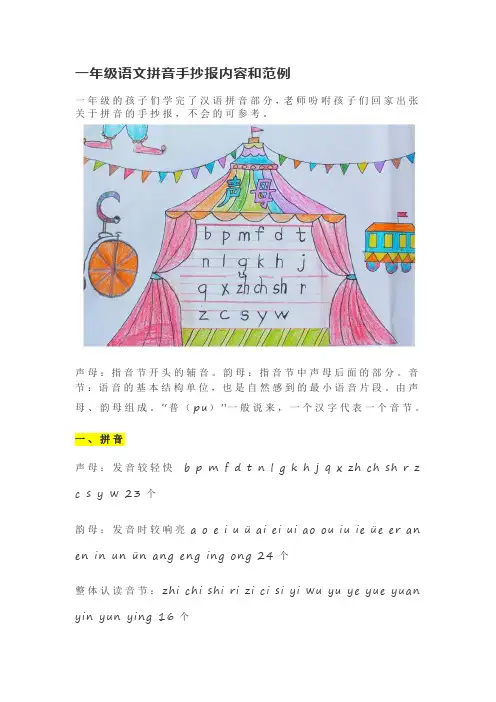 一年级语文拼音手抄报内容和范例
一年级的孩子们学完了汉语拼音部分，老师吩咐孩子们回家出张
关于拼音的手抄报，不会的可参考。
声母
b p m f d t
n l g k h j
q x zh ch sh r
z c s y w
声母：指音节开头的辅音。韵母：指音节中声母后面的部分。音
节：语音的基本结构单位，也是自然感到的最小语音片段。由声
母、韵母组成。“普（pu）”一般说来，一个汉字代表一个音节。
一、拼音
声母：发音较轻快 b p m f d t n l g k h j q x zh ch sh r z
c s y w 23 个
韵母：发音时较响亮 a o e i u ü ai ei ui ao ou iu ie üe er an
en in un ün ang eng ing ong 24 个
整体认读音节：zhi chi shi ri zi ci si yi wu yu ye yue yuan
yin yun ying 16 个